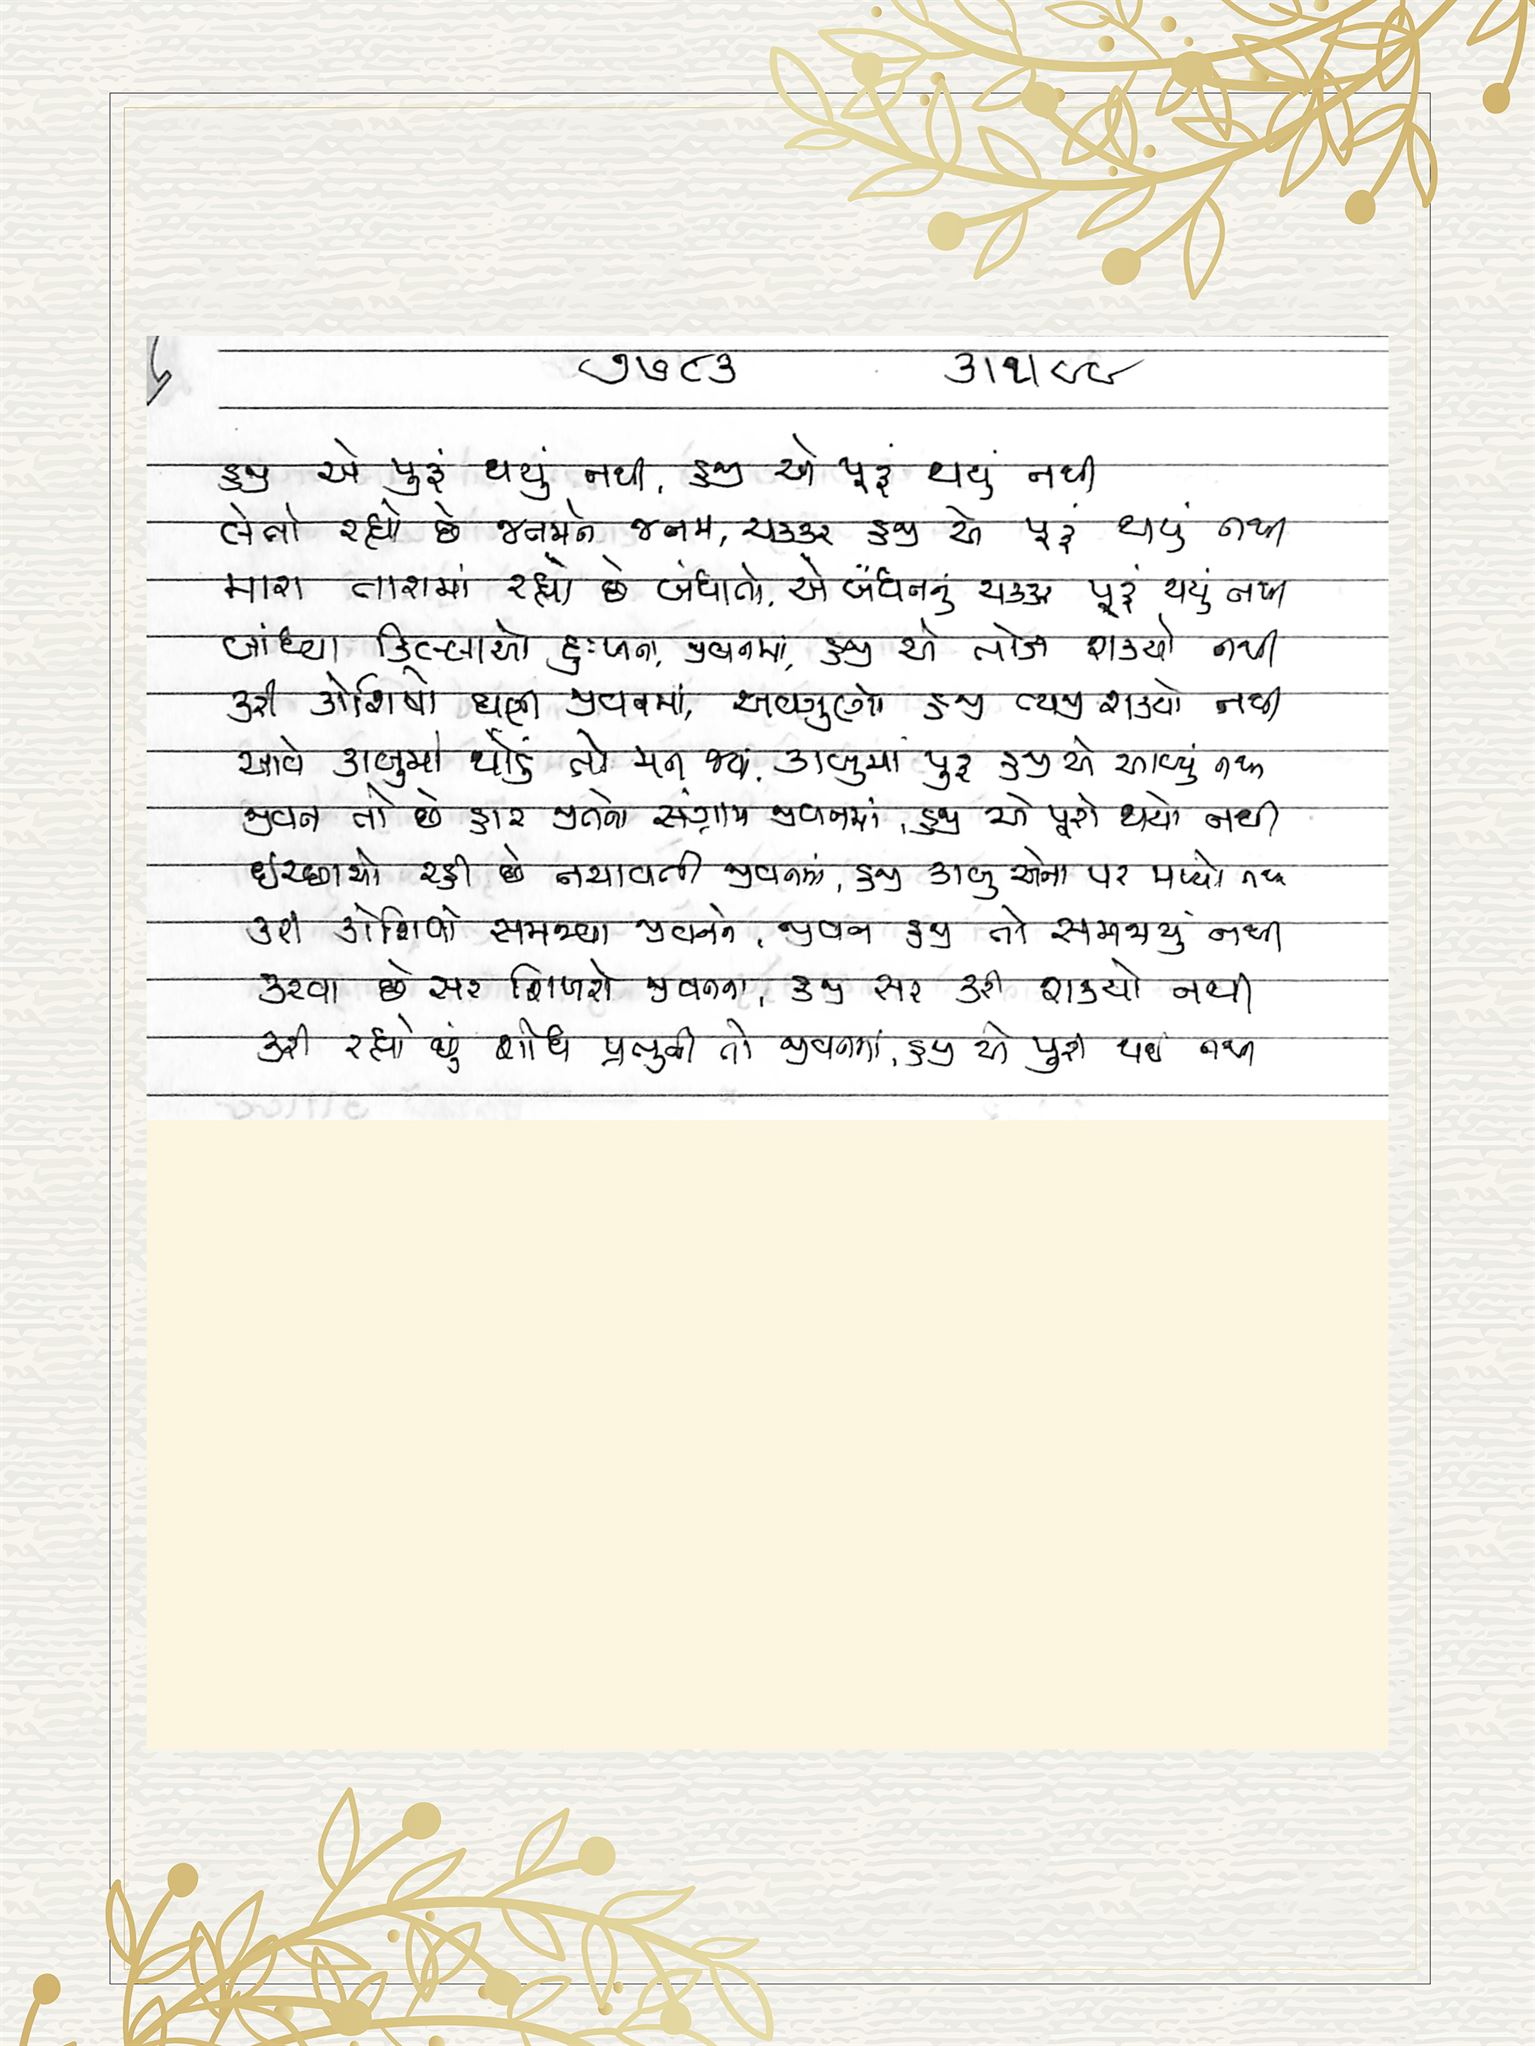 ૭૭૯૩ ૩।૧।૯૯
હજી એ પુરૂં થયું નથી, હજી એ પૂરૂં થયું નથી
લેતો રહ્યો છે જનમને જનમ, ચક્કર હજી એ પૂરૂં થાયું નથી
મારા તારામાં રહ્યો છે બંધાતો, એ બંધનનું ચક્કર પૂરૂં થયું નથી
બાંધ્યા કિલ્લાઓ દુઃખના, જીવનમાં, હજી એ તોડી શક્યો નથી
કરી કોશિષો ઘણી જીવનમાં, અવગુણો હજી ત્યજી શક્યો નથી
આવે કાબુમાં થોડું તો મન જ્યાં, કાબુમાં પુરૂ હજી એ આવ્યું નથી
જીવન તો છે હાર જીતનો સંગ્રામ જીવનમાં, હજી એ પૂરો થયો નથી
ઈચ્છાઓ રહી છે નચાવતી જીવનમાં, હજી કાબુ એના પર મળ્યો નથી
કરી કોશિષો સમજવા જીવનને, જીવન હજી તો સમજાયું નથી
કરવા છે સર શિખરો જીવનના, હજી સર કરી શક્યો નથી
કરી રહ્યો છું શોધ પ્રભુની તો જીવનમાં, હજી એ પુરી થઈ નથી